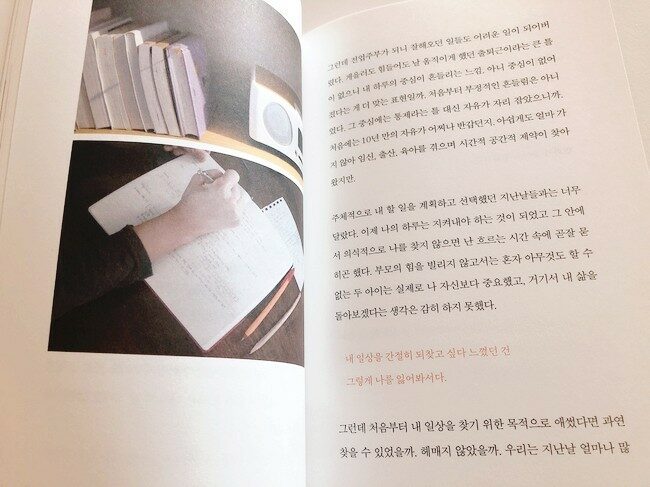 그런데 전업주부가 되니 잘해오던 일들도 어려운 일이 되어버
렸다. 게을러도 힘들어도 날 움직이게 했던 출퇴근이라는 큰 틀
이 없으니 내 하루의 중심이 흔들리는 느낌. 아니 중심이 없어
졌다는 게 더 맞는 표현일까. 처음부터 부정적인 흔들림은 아니
었다. 그 중심에는 통제라는 틀 대신 자유가 자리 잡았으니까.
처음에는 10년 만의 자유가 어찌나 반갑던지. 아쉽게도 얼마 가
지 않아 임신, 출산, 육아를 겪으며 시간적 공간적 제약이 찾아
왔지만.
주체적으로 내 할 일을 계획하고 선택했던 지난날들과는 너무
달랐다. 이제 나의 하루는 지켜내야 하는 것이 되었고 그 안에
서 의식적으로 나를 찾지 않으면 난 흐르는 시간 속에 곧잘 묻
히곤 했다. 부모의 힘을 빌리지 않고서는 혼자 아무것도 할 수
없는 두 아이는 실제로 나 자신보다 중요했고, 거기서 내 삶을
돌아보겠다는 생각은 감히 하지 못했다.
내 일상을 간절히 되찾고 싶다 느꼈던 건
그렇게 나를 잃어봐서다.
그런데 처음부터 내 일상을 찾기 위한 목적으로 애썼다면 과연
찾을 수 있었을까. 헤매지 않았을까. 우리는 지난날 얼마나 많